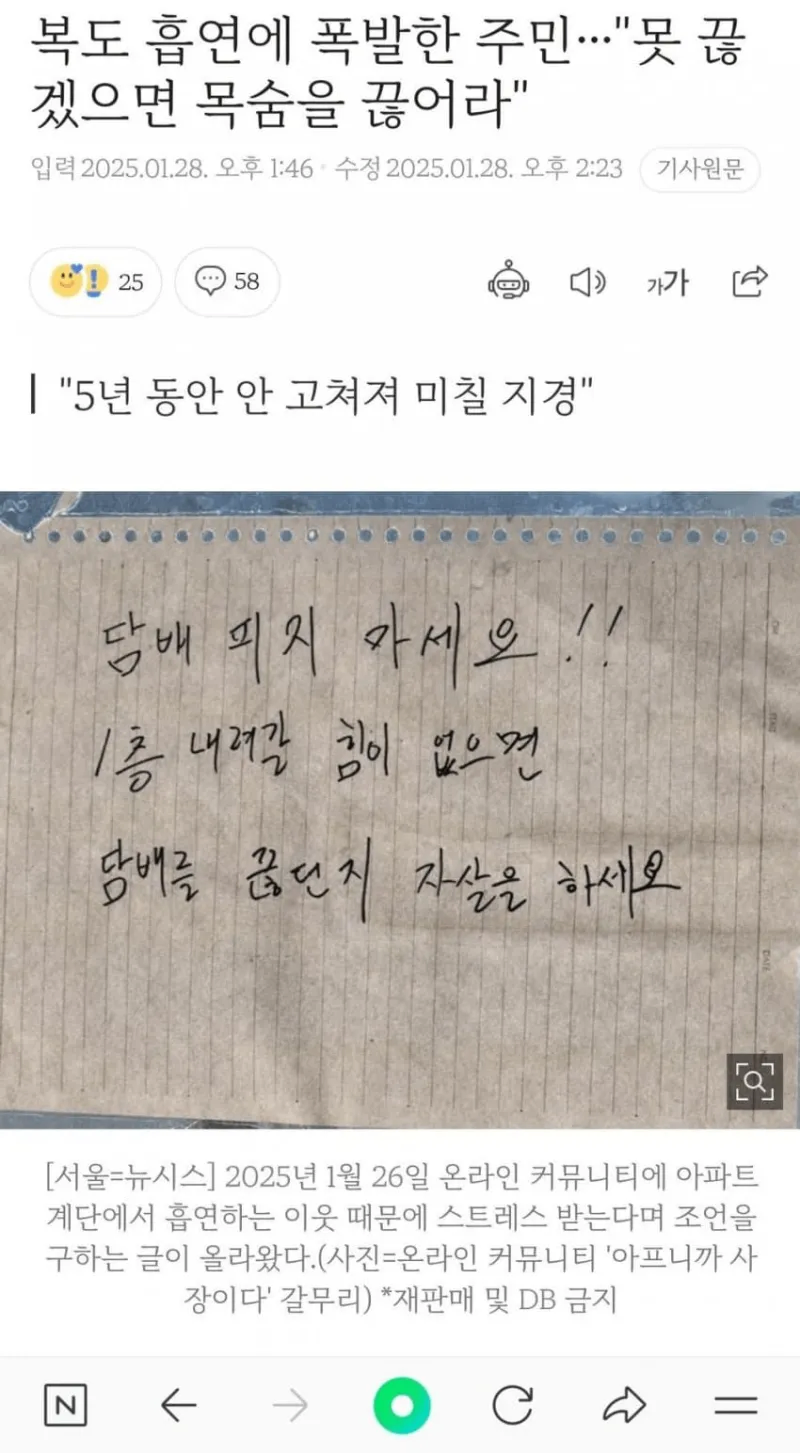 복도 흡연에 폭발한 주민…"못 끊
겠으면 목숨을 끊어라"
입력 2025.01.28. 오후 1:46 · 수정 2025.01.28. 오후 2:23 기사원문
25 58 가가
"5년 동안 안 고쳐져 미칠 지경"
담배 피지 마세요!!
1층 내려갈 힘이 없으면
담배를 끊던지 자살을 하세요
[서울=뉴시스] 2025년 1월 26일 온라인 커뮤니티에 아파트
계단에서 흡연하는 이웃 때문에 스트레스 받는다며 조언을
구하는 글이 올라왔다.(사진=온라인 커뮤니티 '아프니까 사
장이다' 갈무리) *재판매 및 DB 금지
N